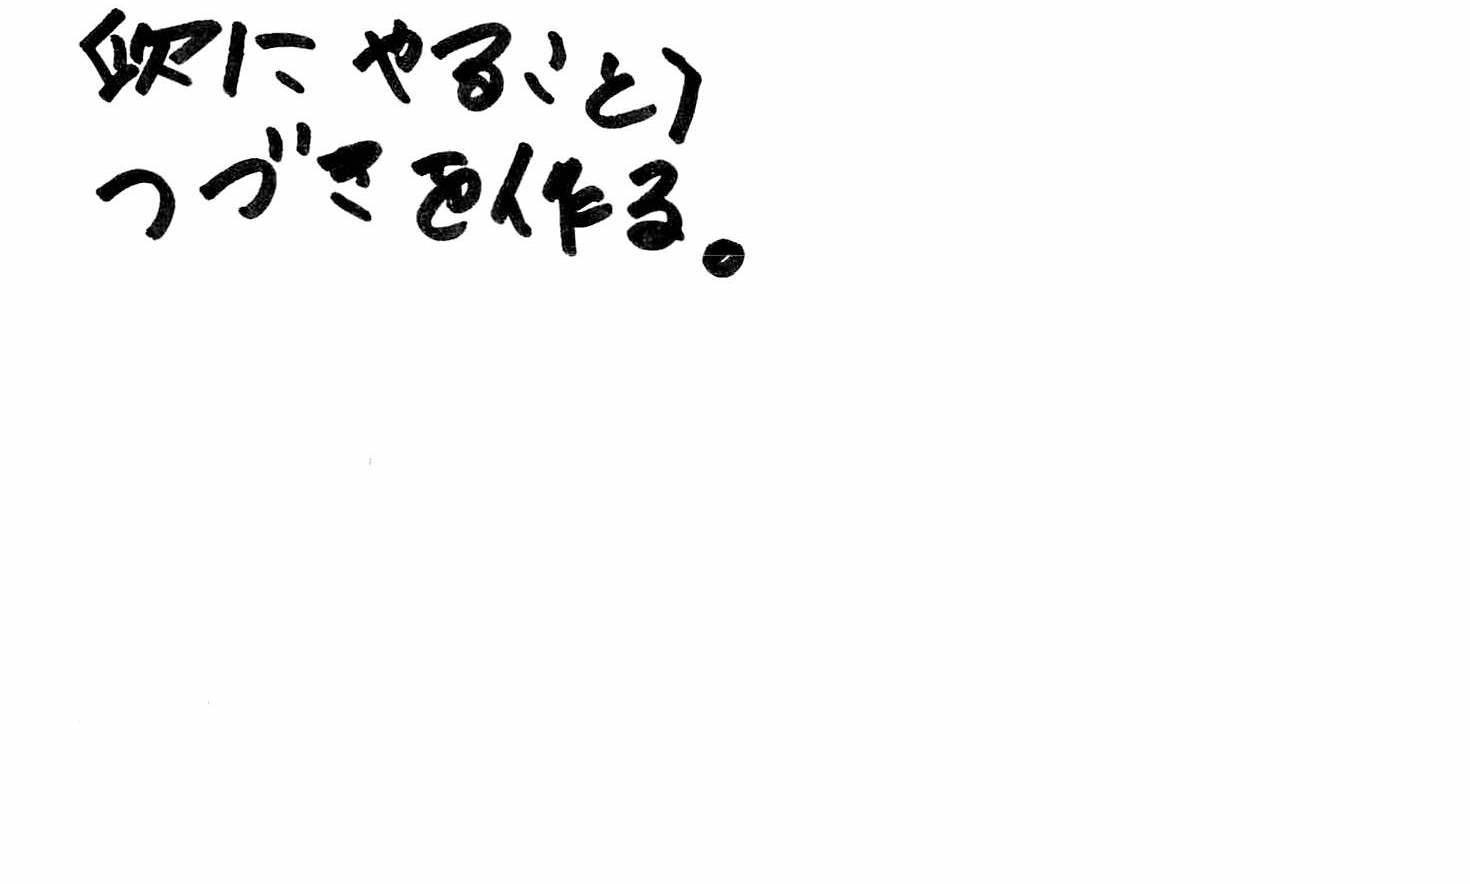 〈次にやること〉
つづきを作る。